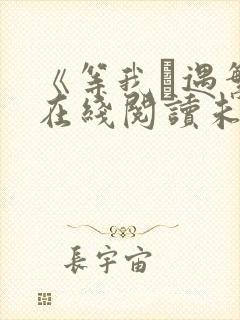 《等我 遇
在綫閱讀未
長宇宙